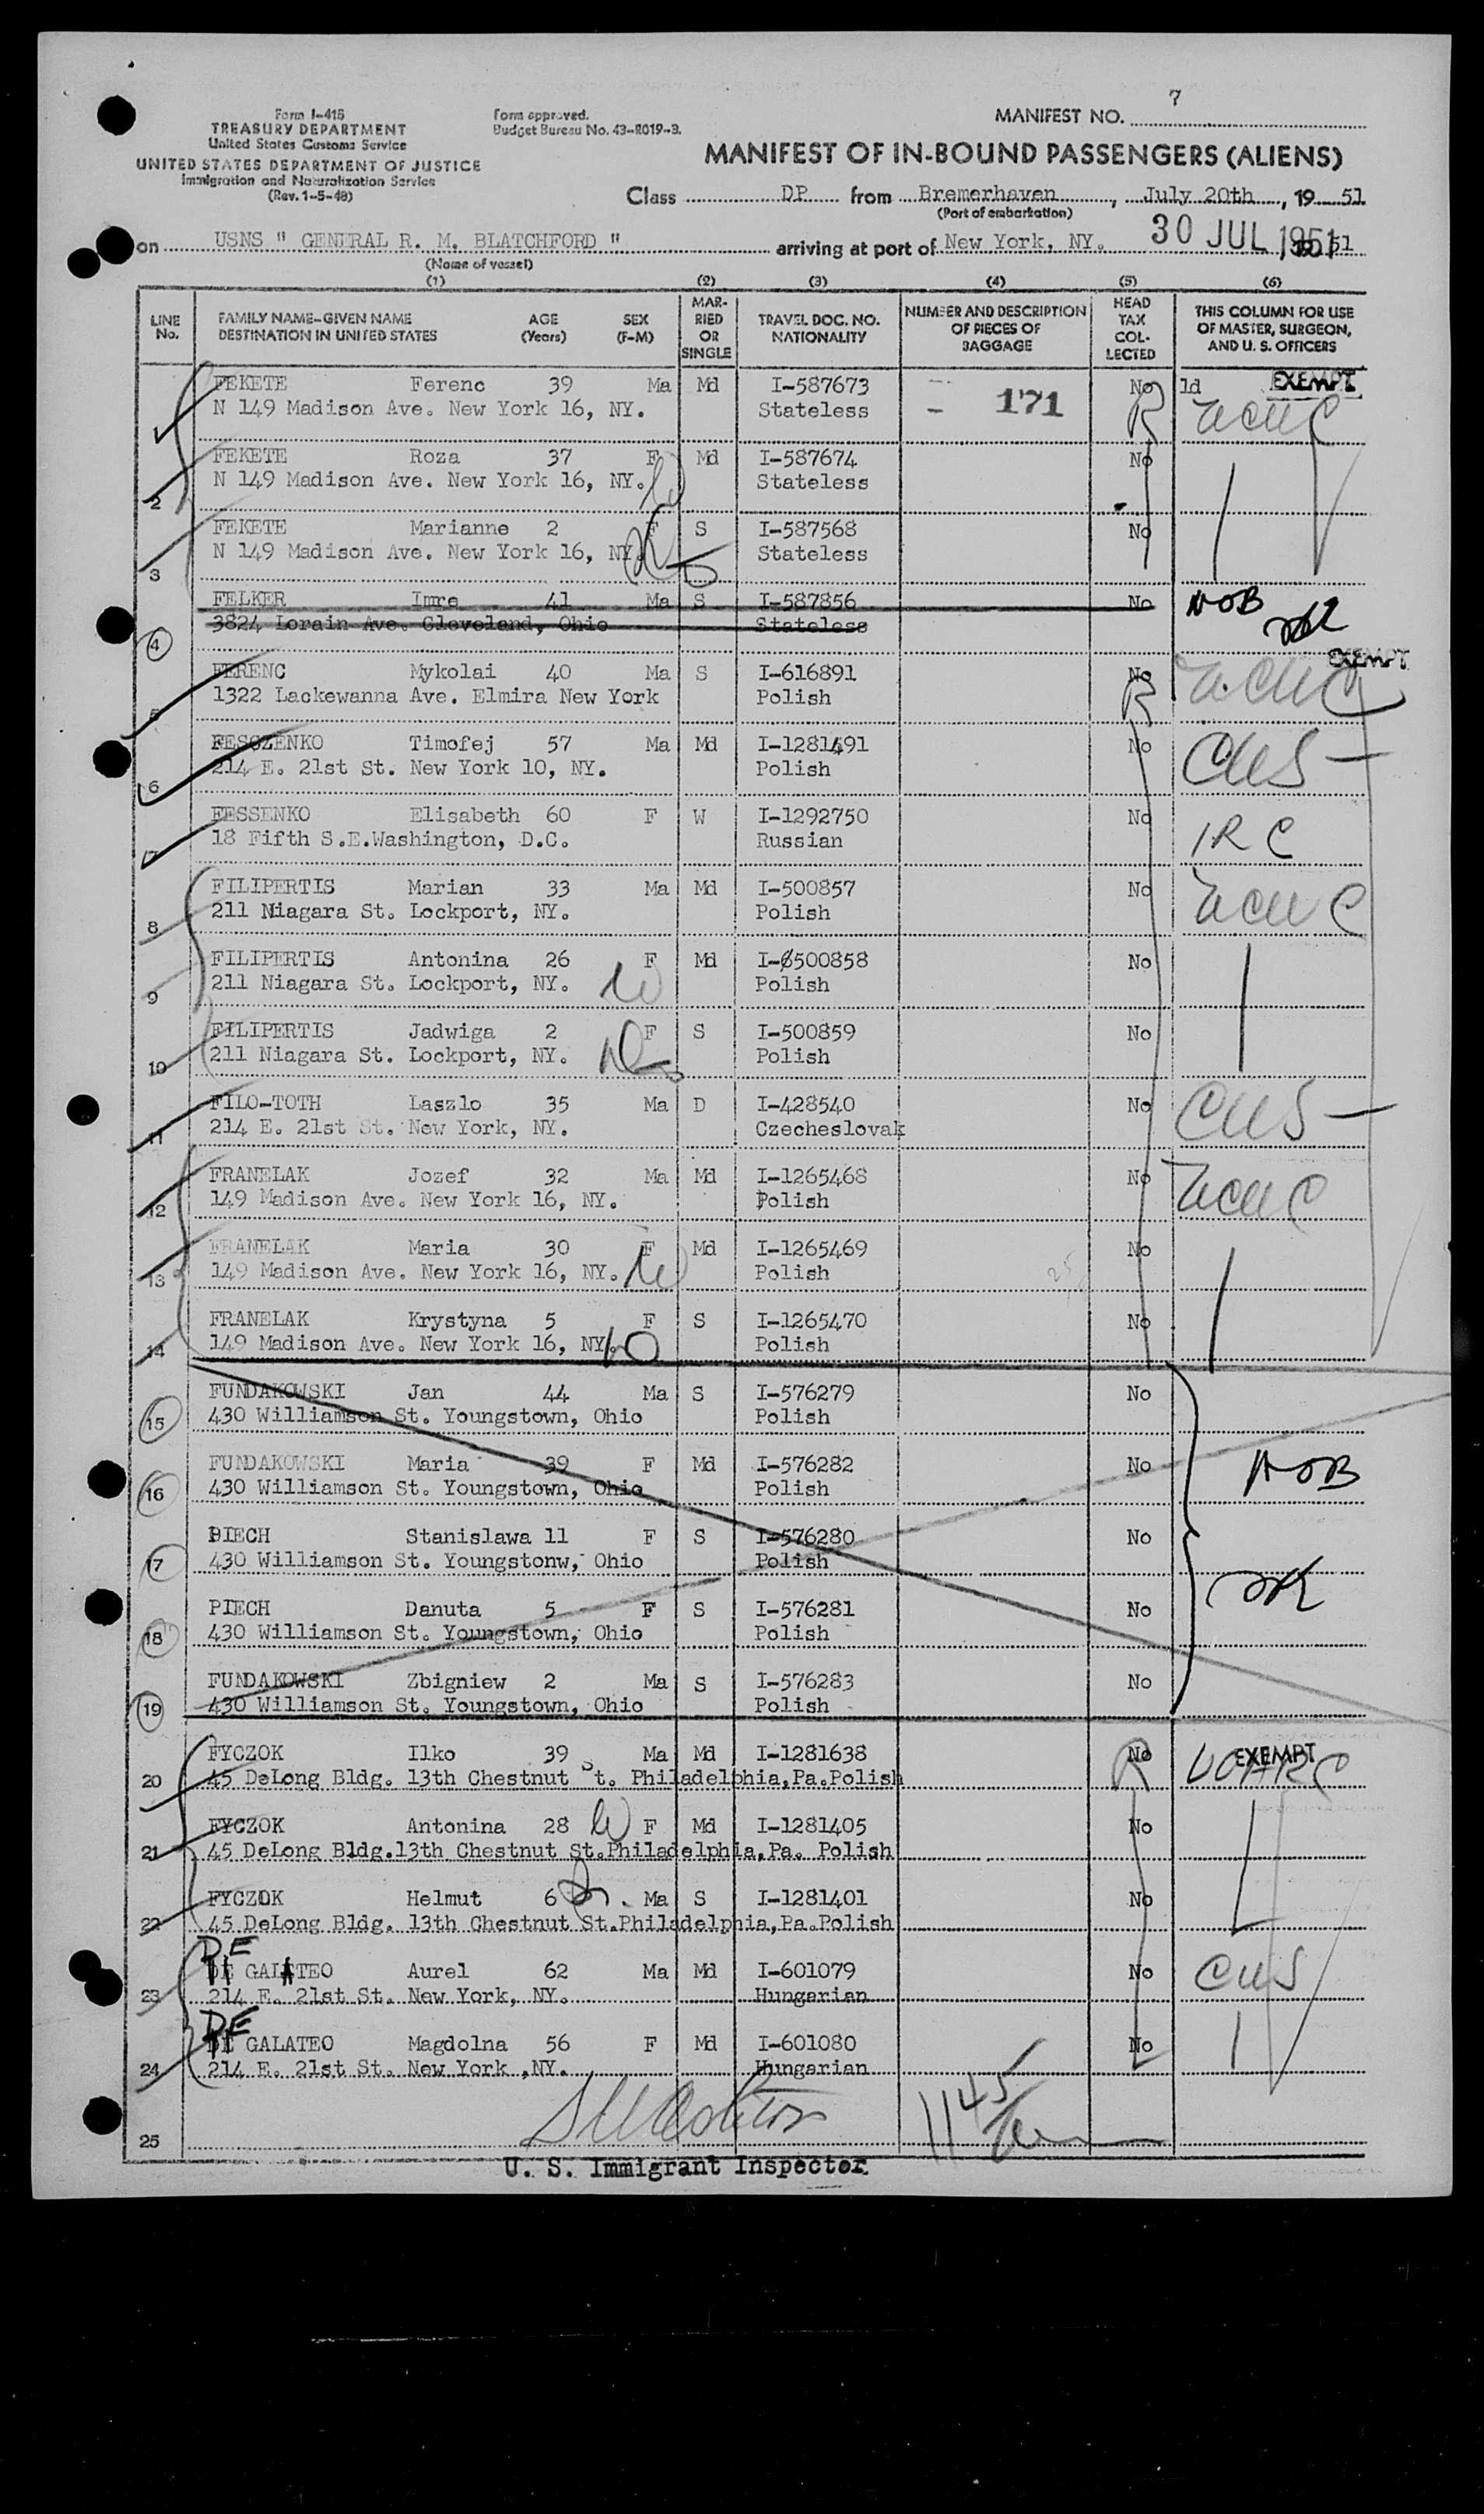 7
Form I-415
TREASURY DEPARTMENT
United States Customs Service
UNITED STATES DEPARTMENT OF JUSTICE
Immigration and Naturalization Service
(Rev. 1-5-48)
Form approved.
Budget Bureau No. 43-R019-3.
MANIFEST NO.
MANIFEST OF IN-BOUND PASSENGERS (ALIENS)
Class DP from Bremerhaven, July 20th, 19 51
(Port of embarkation)
on USNS " GENERAL R. M. BLATCHFORD " arriving at port of New York, NY. 30 JUL 1951 51
(Name of vessel)
(1) (2) (3) (4) (5) (6)
LINE No. FAMILY NAME-GIVEN NAME DESTINATION IN UNITED STATES AGE (Years) SEX (F-M) MARRIED OR SINGLE TRAVEL DOC. NO. NATIONALITY NUMBER AND DESCRIPTION OF PIECES OF BAGGAGE HEAD TAX COLLECTED THIS COLUMN FOR USE OF MASTER, SURGEON, AND U. S. OFFICERS
FEKETE Ferenc 39 Ma Md I-587673 - 171 No ld EXEMPT
1 N 149 Madison Ave. New York 16, NY. Stateless R
FEKETE Roza 37 F Md I-587674 No
2 N 149 Madison Ave. New York 16, NY. Stateless
FEKETE Marianne 2 F S I-587568 No
3 N 149 Madison Ave. New York 16, NY. Stateless
FELKER Imre 41 Ma S I-587856 No NOB
4 3824 Lorain Ave. Cleveland, Ohio Stateless
FERENC Mykolai 40 Ma S I-616891 No EXEMPT
5 1322 Lackewanna Ave. Elmira New York Polish R
FESCZENKO Timofej 57 Ma Md I-1281491 No CWS
6 214 E. 21st St. New York 10, NY. Polish
FESSENKO Elisabeth 60 F W I-1292750 No IRC
7 18 Fifth S.E.Washington, D.C. Russian
FILIPERTIS Marian 33 Ma Md I-500857 No
8 211 Niagara St. Lockport, NY. Polish
FILIPERTIS Antonina 26 F Md I-500858 No
9 211 Niagara St. Lockport, NY. Polish
FILIPERTIS Jadwiga 2 F S I-500859 No
10 211 Niagara St. Lockport, NY. Polish
FILO-TOTH Laszlo 35 Ma D I-428540 No CWS
11 214 E. 21st St. New York, NY. Czecheslovak
FRANELAK Jozef 32 Ma Md I-1265468 No
12 149 Madison Ave. New York 16, NY. Polish
FRANELAK Maria 30 F Md I-1265469 No
13 149 Madison Ave. New York 16, NY. Polish
FRANELAK Krystyna 5 F S I-1265470 No
14 149 Madison Ave. New York 16, NY. Polish
FUNDAKOWSKI Jan 44 Ma S I-576279 No
15 430 Williamson St. Youngstown, Ohio Polish
FUNDAKOWSKI Maria 39 F Md I-576282 No NOB
16 430 Williamson St. Youngstown, Ohio Polish
PIECH Stanislawa 11 F S I-576280 No
17 430 Williamson St. Youngstonw, Ohio Polish
PIECH Danuta 5 F S I-576281 No
18 430 Williamson St. Youngstown, Ohio Polish
FUNDAKOWSKI Zbigniew 2 Ma S I-576283 No
19 430 Williamson St. Youngstown, Ohio Polish
FYCZOK Ilko 39 Ma Md I-1281638 No EXEMPT
20 45 DeLong Bldg. 13th Chestnut St. Philadelphia,Pa.Polish R
FYCZOK Antonina 28 F Md I-1281405 No
21 45 DeLong Bldg.13th Chestnut St.Philadelphia,Pa. Polish
FYCZOK Helmut 6 Ma S I-1281401 No
22 45 DeLong Bldg. 13th Chestnut St.Philadelphia,Pa.Polish
DE GALATEO Aurel 62 Ma Md I-601079 No CWS
23 214 E. 21st St. New York, NY. Hungarian
DE GALATEO Magdolna 56 F Md I-601080 No
24 214 E. 21st St. New York ,NY. Hungarian
1145
25
U. S. Immigrant Inspector